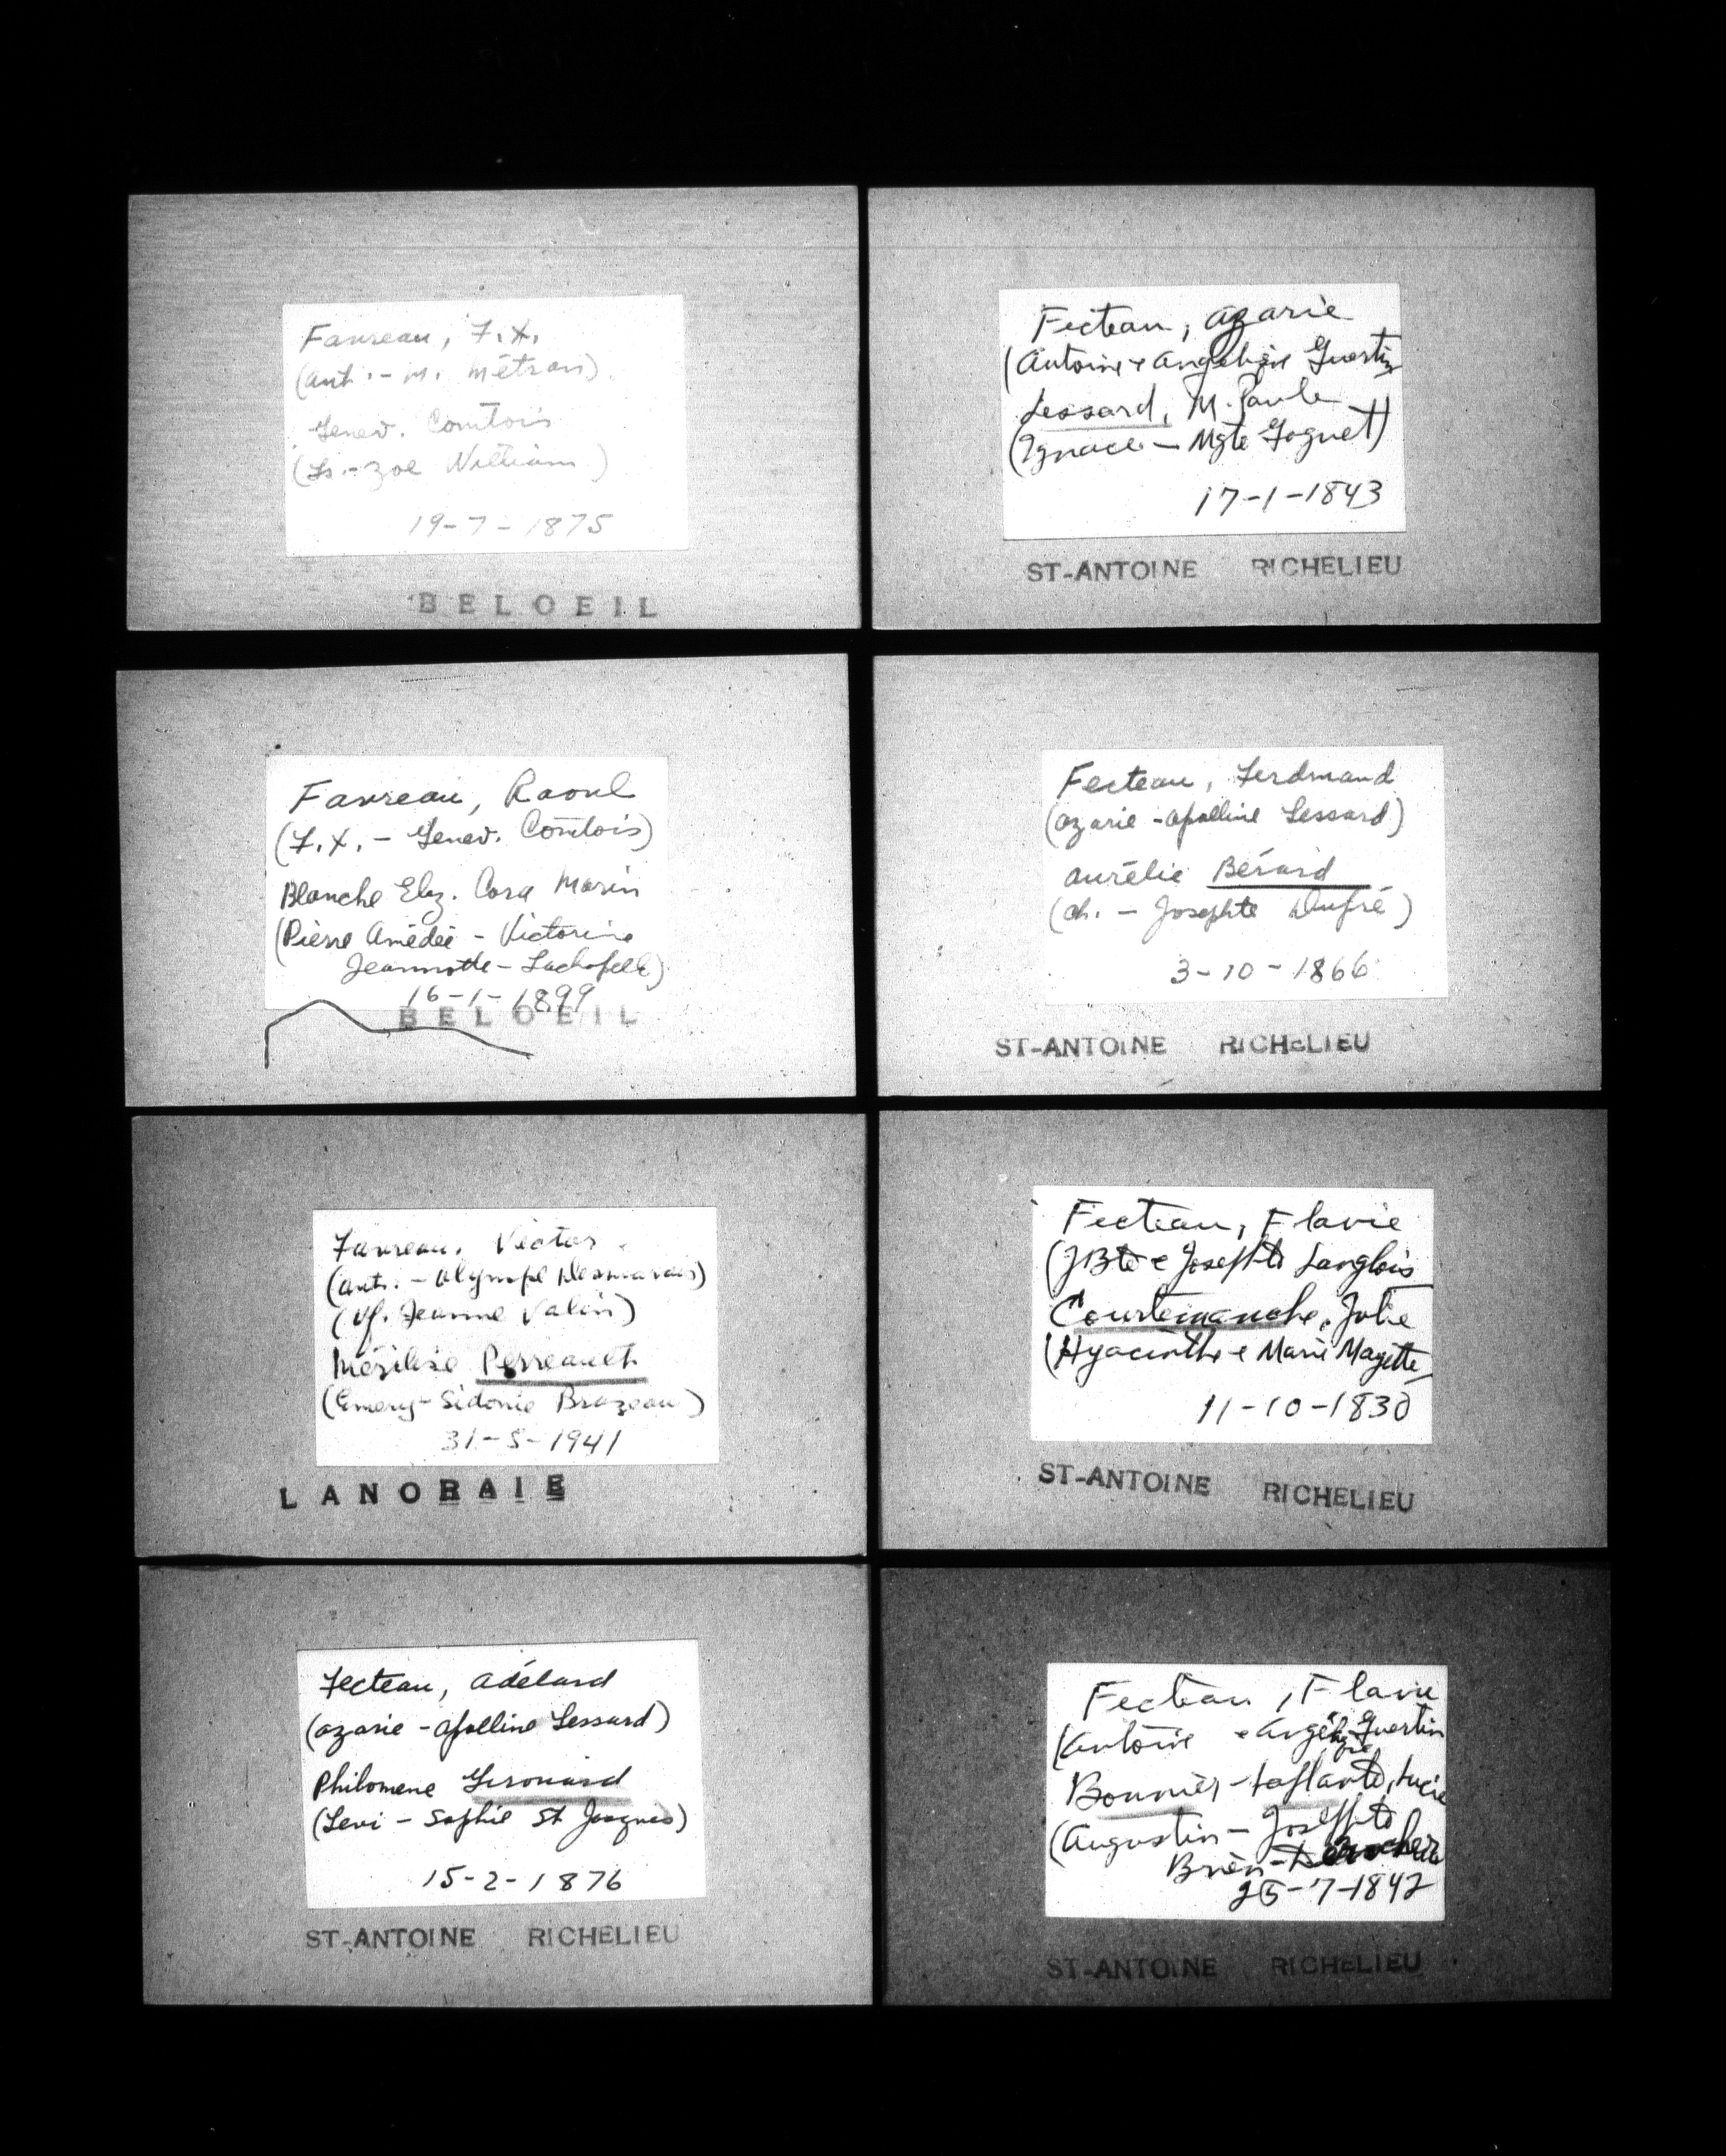 Favreau, F.X.
(Ant. - M. Métran)
Genev. Comtois
(Ls. - Zoé William)
19-7-1875
BELOEIL
Favreau, Raoul
(F.X. - Genev. Comtois)
Blanche Elz. Cora Morin
(Pierre Amédée - Victorine
Jeannotte - Lachapelle)
16-1-1899
BELOEIL
Favreau, Victor
(Ant. - Olympe Desmarais)
(Vf. Jeanne Valin)
Mérilise Perreault
(Emery - Sidonie Brazeau)
31-5-1941
LANORAIE
Fecteau, Adélard
(Azarie - Apolline Lessard)
Philomene Girouard
(Levi - Sophie St Jacques)
15-2-1876
ST-ANTOINE RICHELIEU
Fecteau, Azarie
(Antoine & Angélique Guertin
Lessard, M. Paule
(Ignace - Mgte Goguet)
17-1-1843
ST-ANTOINE RICHELIEU
Fecteau, Ferdinand
(Azarie - Apolline Lessard)
Aurélie Bérard
(Ch. - Josephte Dupré)
3-10-1866
ST-ANTOINE RICHELIEU
Fecteau, Flavie
(JBte & Josephte Langlois
Courtemanche, Jolie
(Hyacinthe & Marie Magitte
11-10-1830
ST-ANTOINE RICHELIEU
Fecteau, Flavie
(Antoine & Angélique Guertin
Bonnier-Laplante, Lucie
(Augustin - Josephte
Brien-Derocher
25-7-1842
ST-ANTOINE RICHELIEU